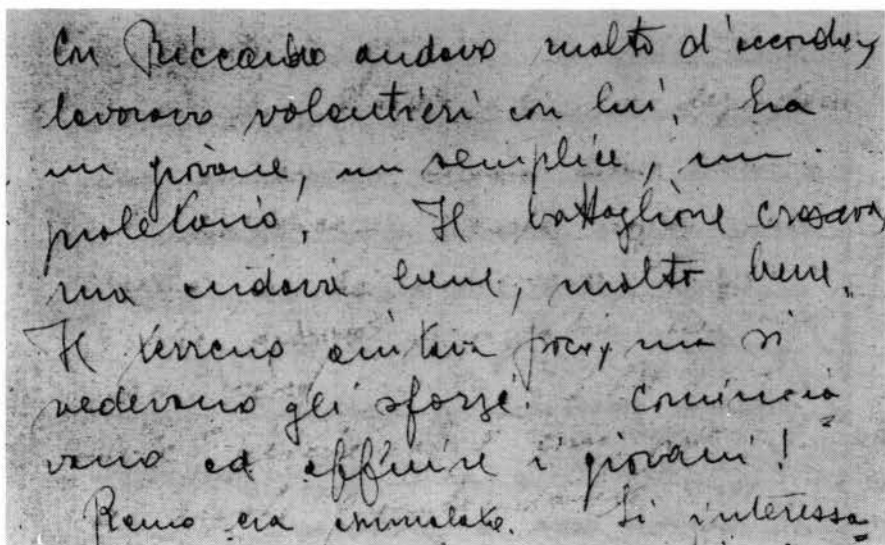 Con Riccardo andavo molto d'accordo,
lavoravo volentieri con lui. Era
un giovane, un semplice, un
proletario. Il battaglione cresceva,
ma andava bene, molto bene.
Il terreno aiutava poco, ma si
vedevano gli sforzi. Comincia-
vano ad affluire i giovani!
Remo era ammalato. Si interessa-